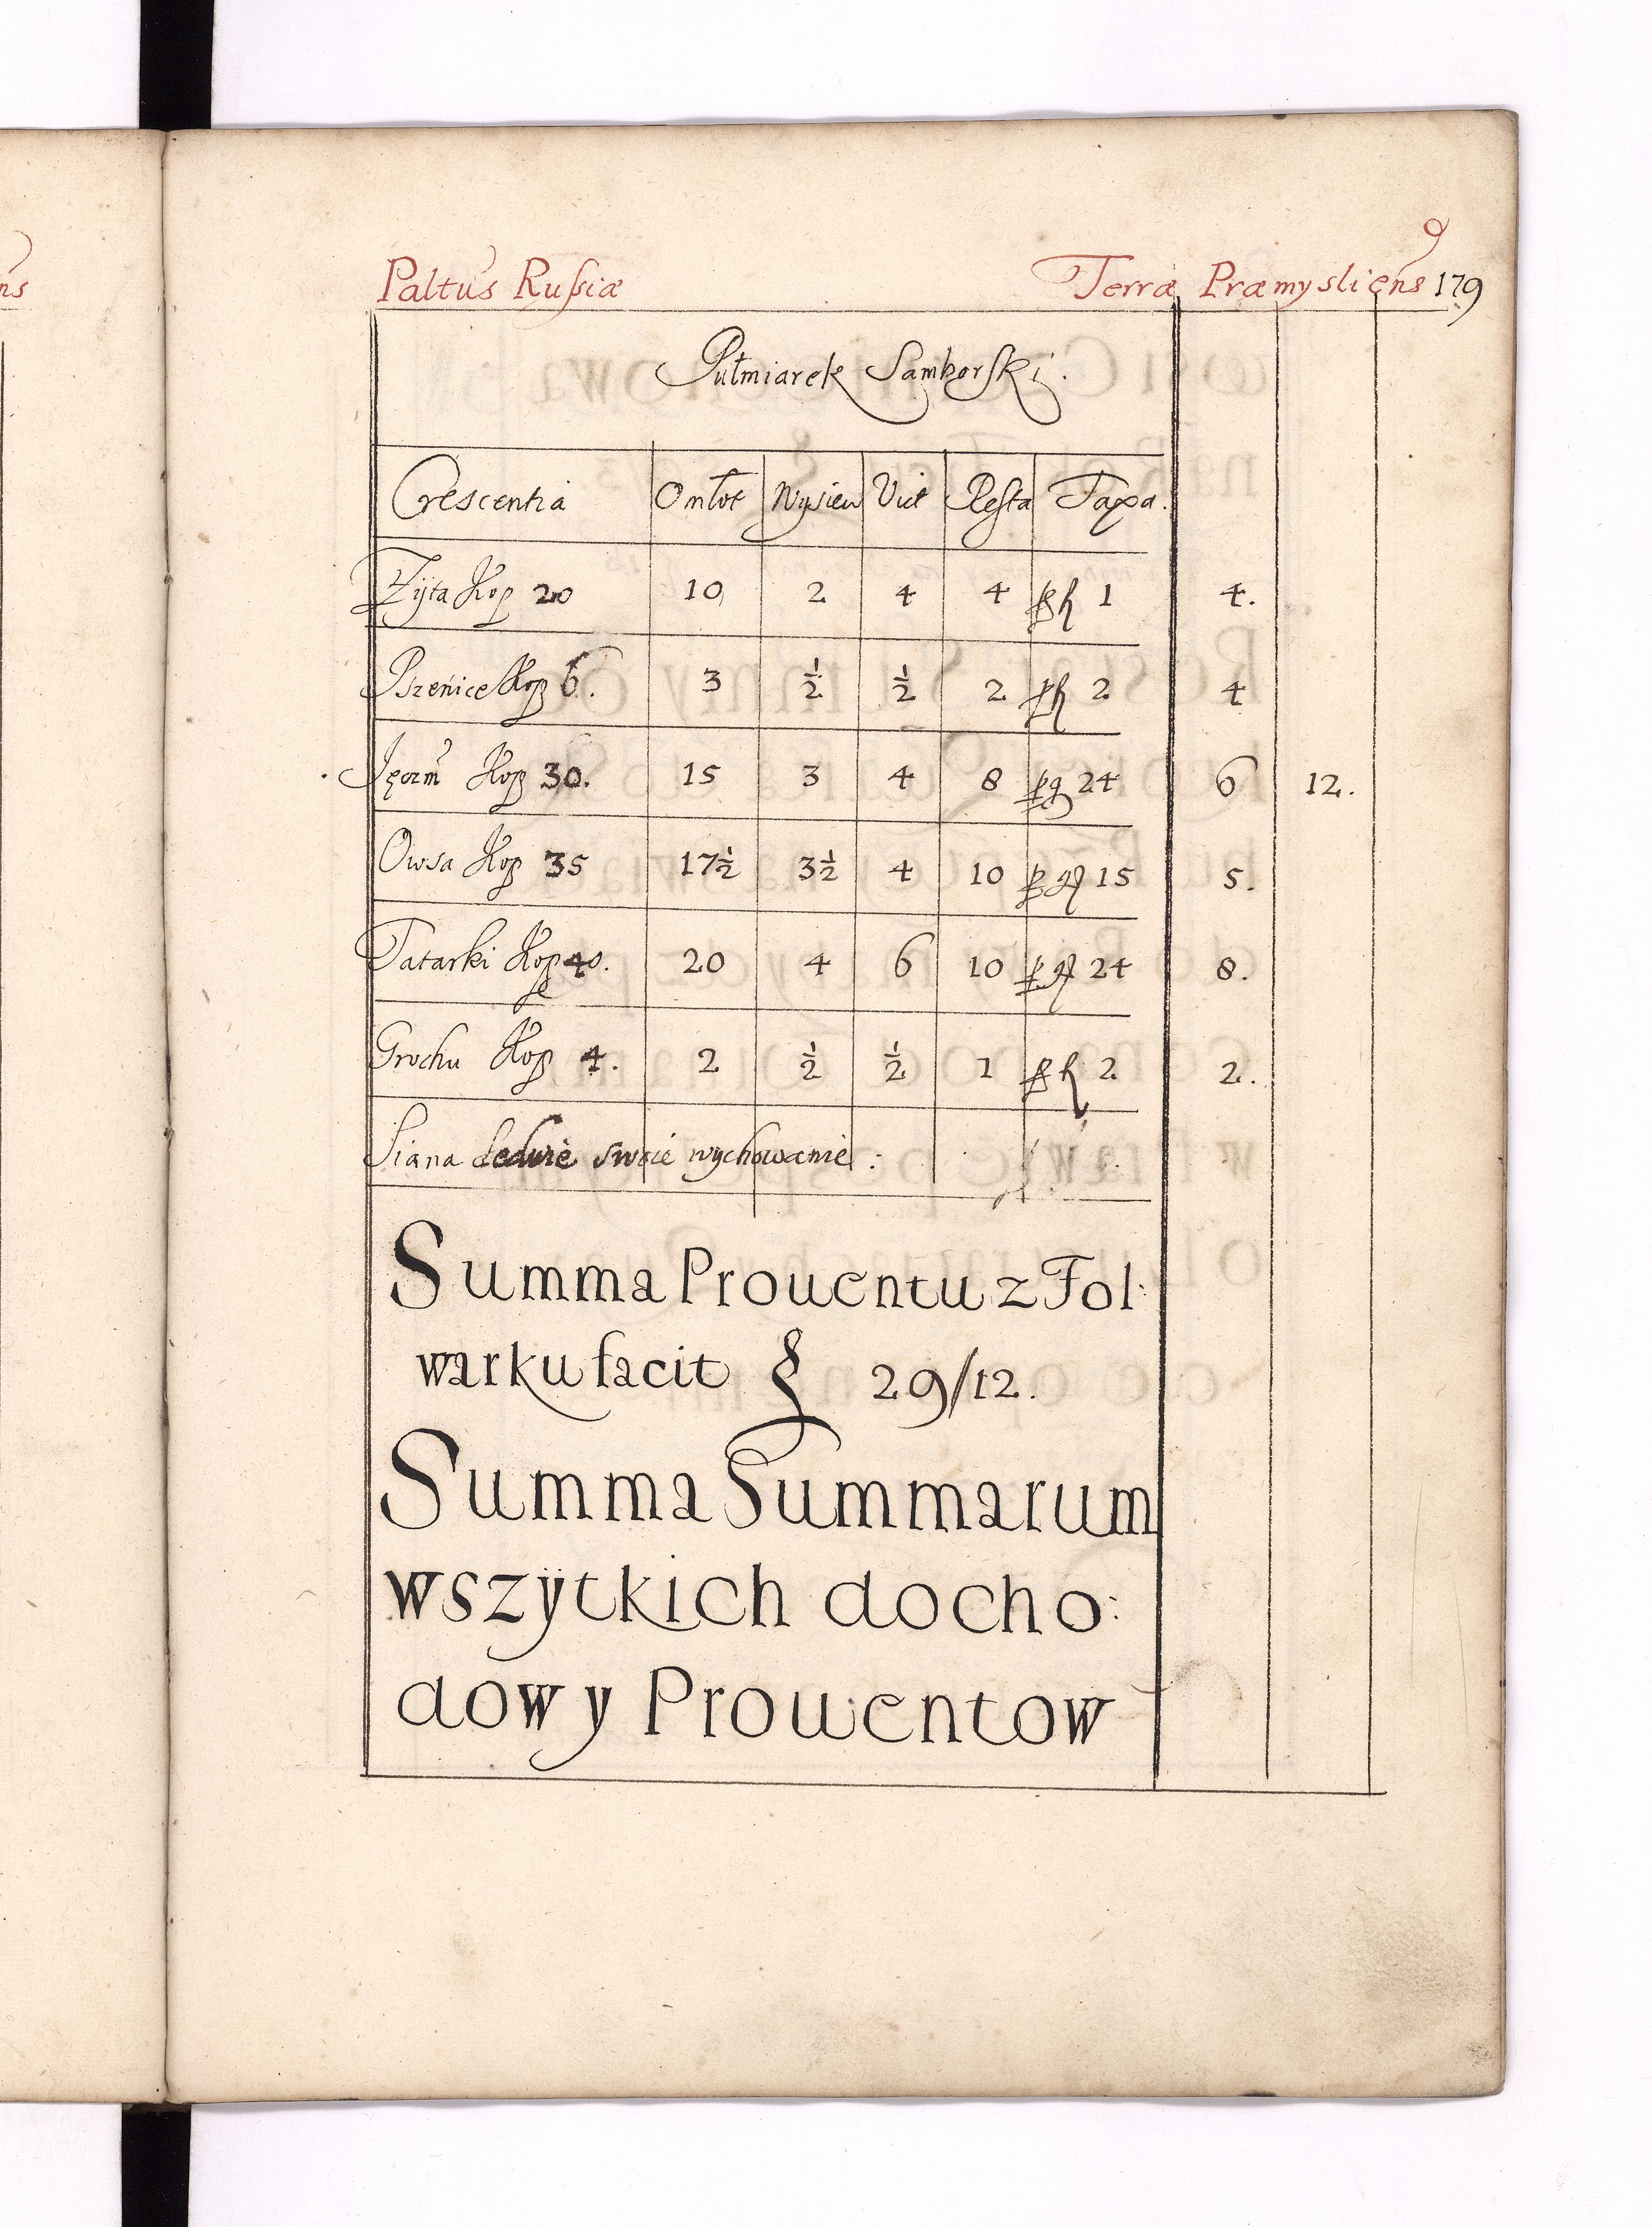 ns
Paltus Russiæ Terræ Præmysliens 179
Pułmiarek Samborski.
Crescentia Omłot Wysiew Vict Resta Taxa.
Zyta Kop 20 10 2 4 4 1 4.
Pszenice Kop 6. 3 ½ ½ 2 2 4
Jęczm Kop 30. 15 3 4 8 24 6 12.
Owsa Kop 35 17½ 3½ 4 10 15 5.
Tatarki Kop 40. 20 4 6 10 24 8.
Grochu Kop 4. 2 ½ ½ 1 2 2.
Siana ledwie swoie wychowanie:
Summa Prouentu z Fol:
warku facit 29/12.
Summa Summarum
wszÿtkich docho:
dow y Prouentow